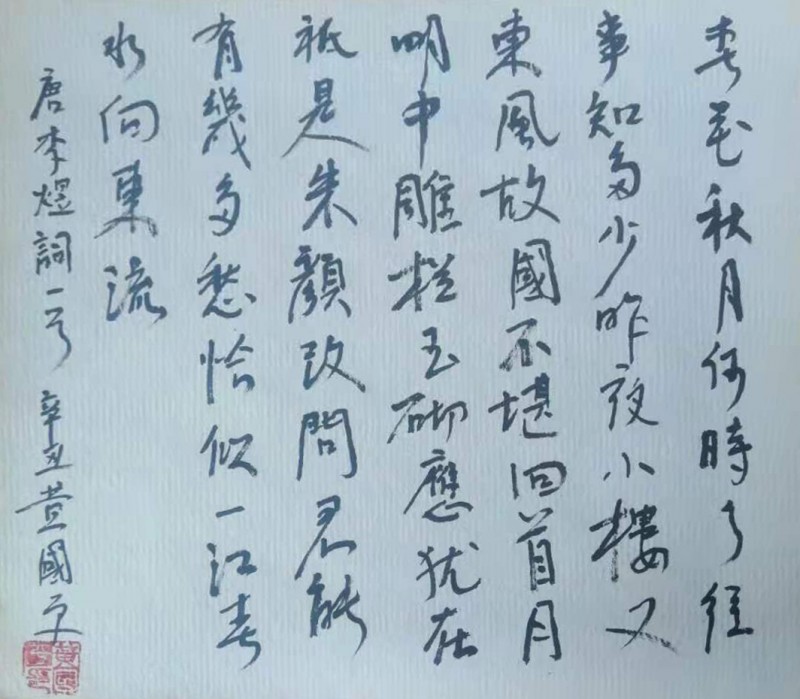 春花秋月何時了往
事知多少昨夜小樓又
東風故國不堪回首月
明中雕栏玉砌應犹在
祇是朱顏改問君能
有幾多愁恰似一江春
水向東流
唐李煜詞一首 辛丑黄國